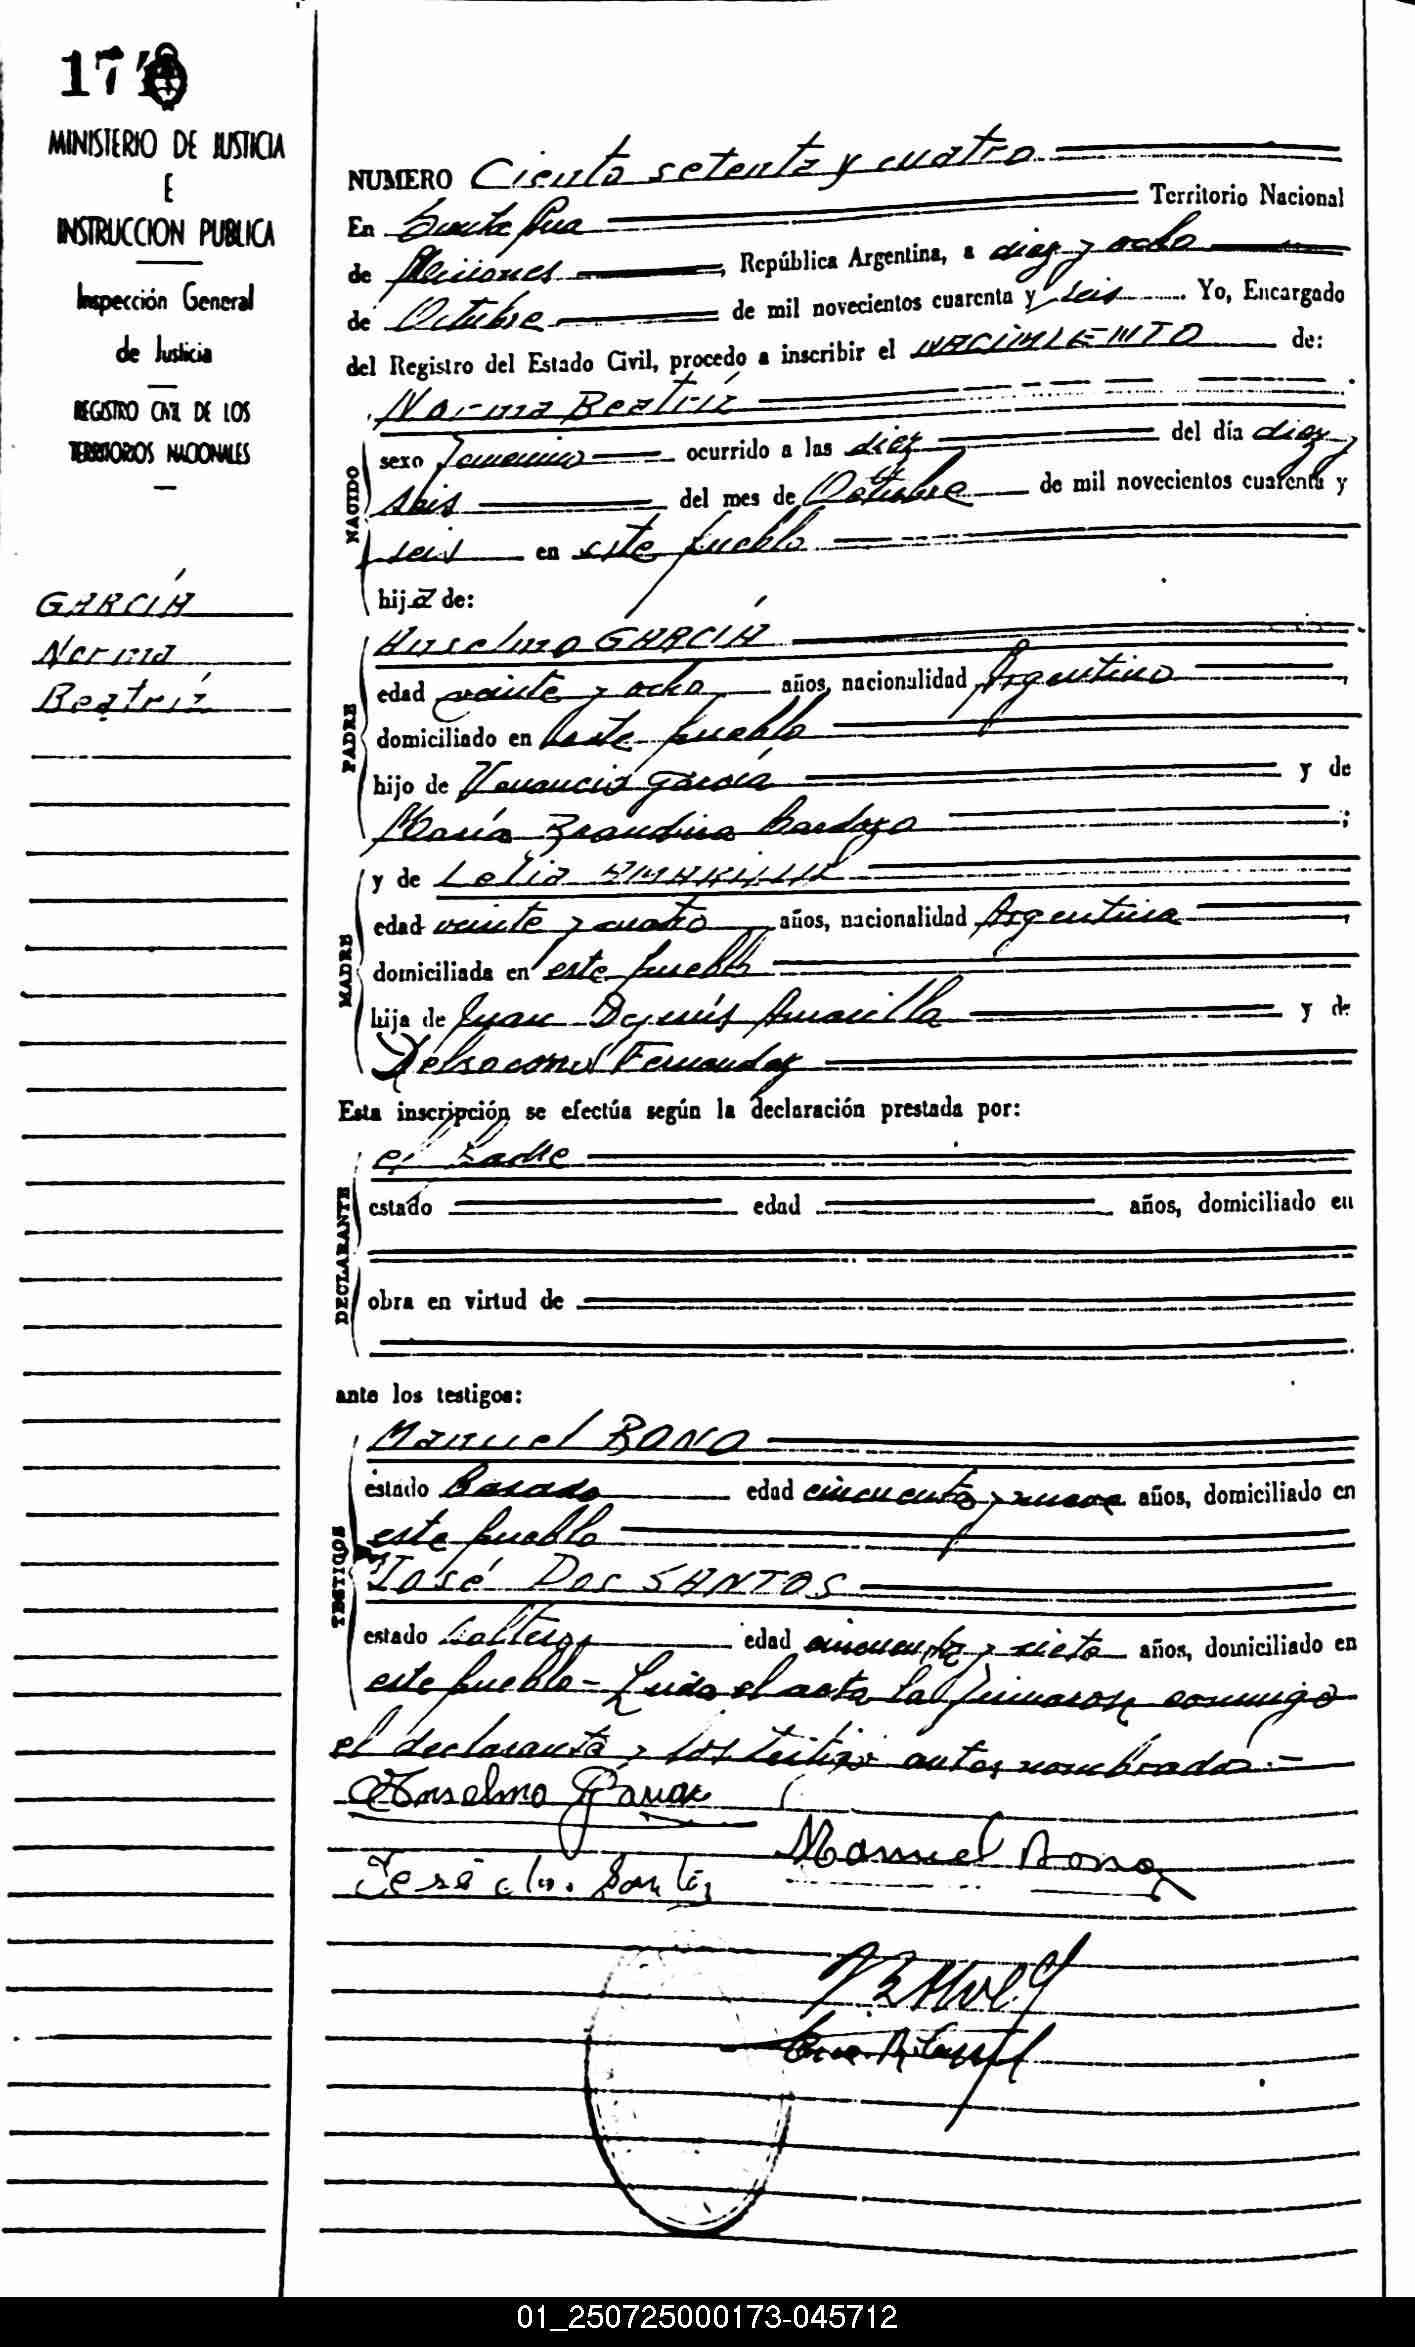 174
MINISTERIO DE JUSTICIA
E
INSTRUCCION PUBLICA
Inspección General
de Justicia
REGISTRO CIVIL DE LOS
TERRITORIOS NACIONALES
GARCÍA
Norma
Beatríz
NUMERO Ciento setenta y cuatro
En Santa Ana Territorio Nacional
de Misiones, República Argentina, a diez y ocho
de Octubre de mil novecientos cuarenta y seis. Yo, Encargado
del Registro del Estado Civil, procedo a inscribir el NACIMIENTO de:
Norma Beatríz
NACIDO
sexo femenino ocurrido a las diez del día diez y
seis del mes de Octubre de mil novecientos cuarenta y
seis en este pueblo
hija de:
PADRE
Anselmo GARCÍA
edad veinte y ocho años, nacionalidad Argentino
domiciliado en este pueblo
hijo de Venancio García y de
María Cardozo;
MADRE
y de Lelia AMARILLA
edad veinte y cuatro años, nacionalidad Argentina
domiciliada en este pueblo
hija de Juan Amarilla y de
Fernandez
Esta inscripción se efectúa según la declaración prestada por:
DECLARANTE
el Padre
estado edad años, domiciliado en
obra en virtud de
ante los testigos:
TESTIGOS
Manuel BONO
estado Casado edad cincuenta y nueve años, domiciliado en
este pueblo
José Dos SANTOS
estado soltero edad cincuenta y siete años, domiciliado en
este pueblo - Leida el acta la firmaron conmigo
el declarante y los testigos antes nombrados.-
Anselmo García
Manuel Bono
José do. Santos
01_250725000173-045712